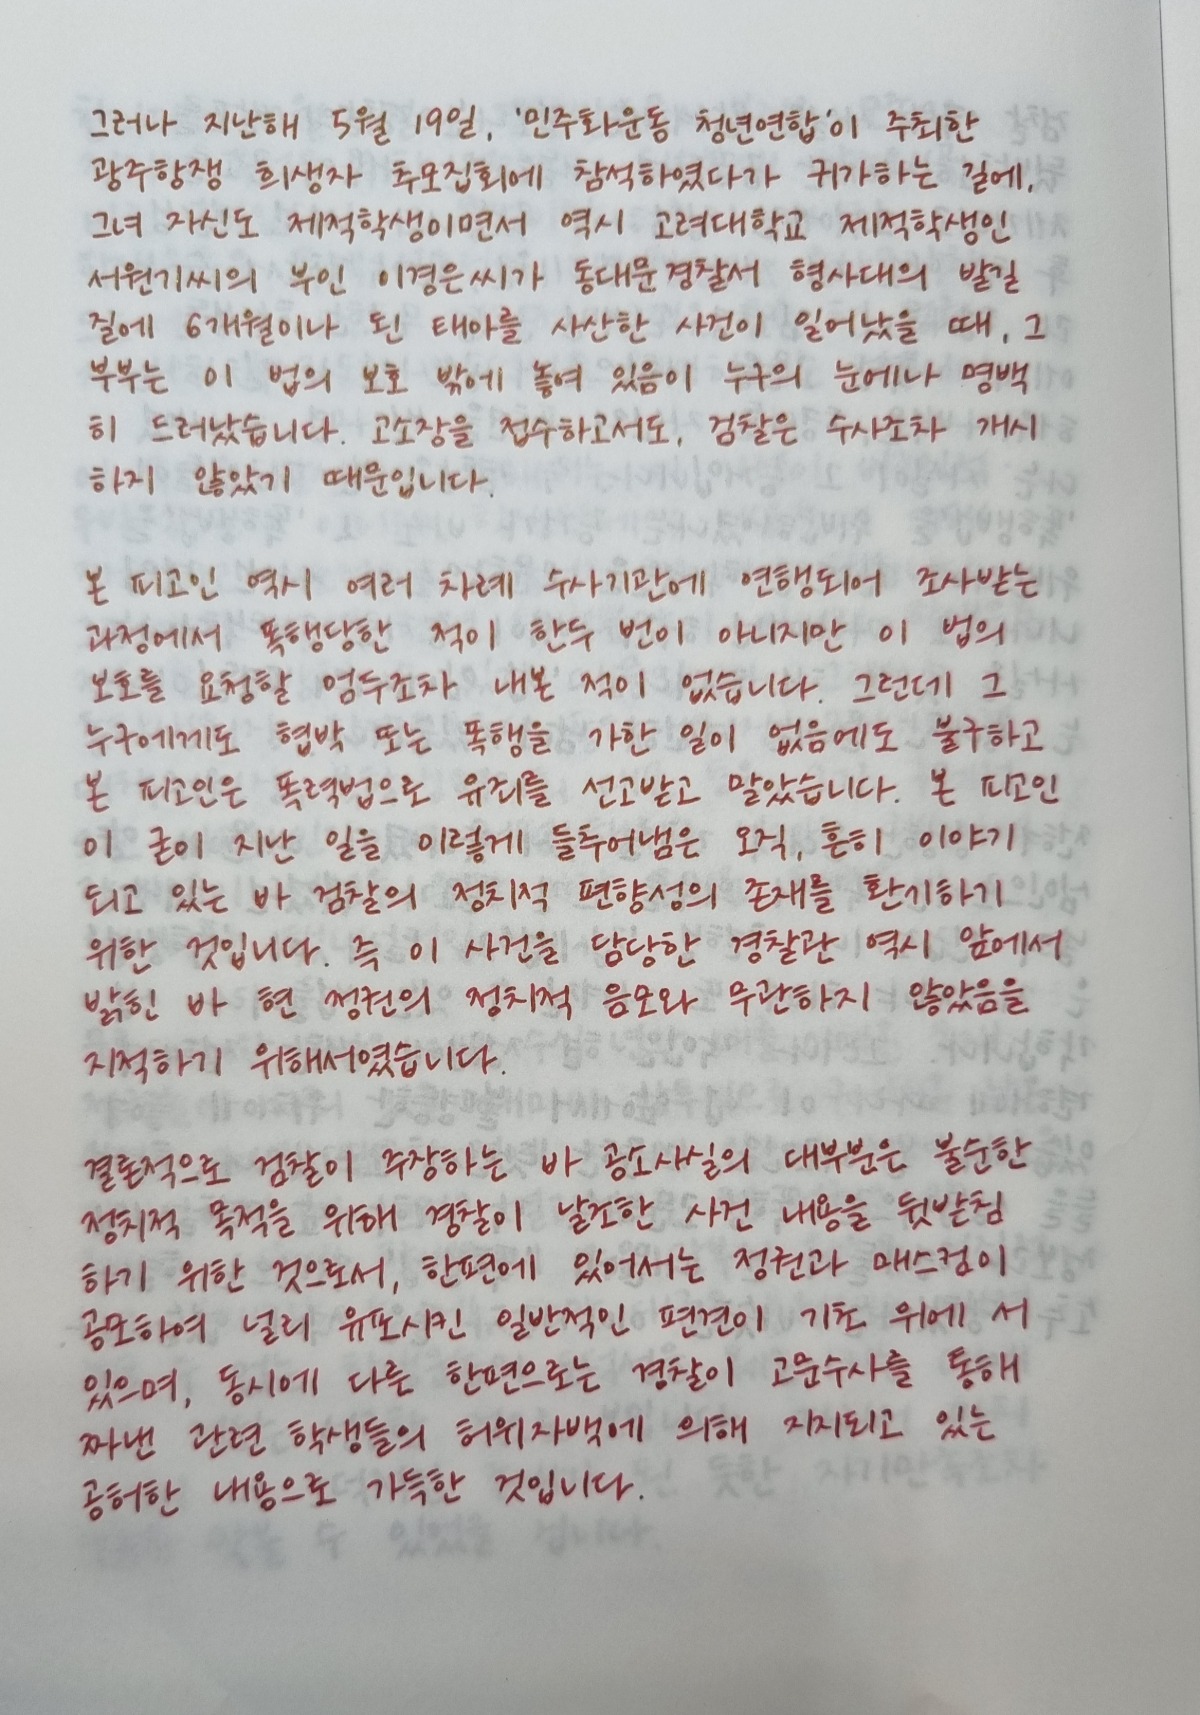 그러나 지난해 5월 19일, '민주화운동 청년연합'이 주최한
광주항쟁 희생자 추모집회에 참석하였다가 귀가하는 길에,
그녀 자신도 제적학생이면서 역시 고려대학교 제적학생인
서원기씨의 부인 이경은씨가 동대문경찰서 형사대의 발길
질에 6개월이나 된 태아를 사산한 사건이 일어났을 때, 그
부부는 이 법의 보호 밖에 놓여 있음이 누구의 눈에나 명백
히 드러났습니다. 고소장을 접수하고서도, 검찰은 수사조차 개시
하지 않았기 때문입니다.
본 피고인 역시 여러 차례 수사기관에 연행되어 조사받는
과정에서 폭행당한 적이 한두 번이 아니지만 이 법의
보호를 요청할 엄두조차 내본 적이 없습니다. 그런데 그
누구에게도 협박 또는 폭행을 가한 일이 없음에도 불구하고
본 피고인은 폭력법으로 유죄를 선고받고 말았습니다. 본 피고인
이 굳이 지난 일을 이렇게 들추어냄은 오직, 흔히 이야기
되고 있는 바 검찰의 정치적 편향성의 존재를 환기하기
위한 것입니다. 즉 이 사건을 담당한 경찰관 역시 앞에서
밝힌 바 현 정권의 정치적 음모와 무관하지 않았음을
지적하기 위해서였습니다.
결론적으로 검찰이 주장하는 바 공소사실의 대부분은 불순한
정치적 목적을 위해 경찰이 날조한 사건 내용을 뒷받침
하기 위한 것으로서, 한편에 있어서는 정권과 매스컴이
공모하여 널리 유포시킨 일반적인 편견이 기초 위에 서
있으며, 동시에 다른 한편으로는 경찰이 고문수사를 통해
짜낸 관련 학생들의 허위자백에 의해 지지되고 있는
공허한 내용으로 가득한 것입니다.